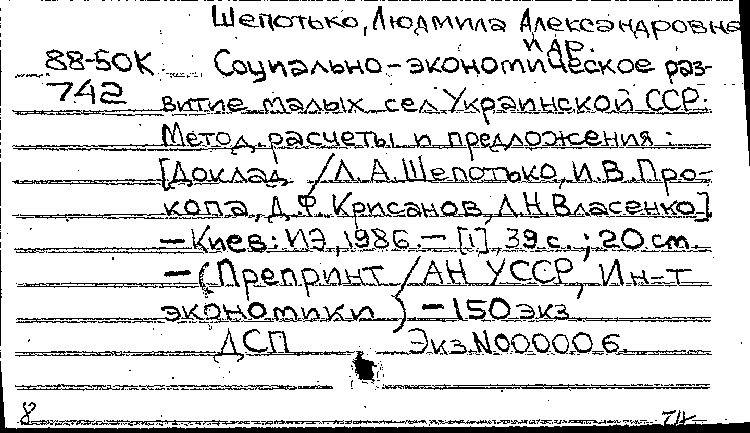 Шепотько, Людмила Александровна
и др.
88-50К Социально-экономическое раз-
742 витие малых сел Украинской ССР:
Метод. расчеты и предложения:
[Доклад / Л. А. Шепотько, И. В. Про-
копа, Д. Ф. Крисанов, Л. Н. Власенко].
— Киев: ИЭ, 1986. — [1], 39 с.; 20 см.
— (Препринт / АН УССР, Ин-т
экономики) — 150 экз.
ДСП Экз. N000006.
8